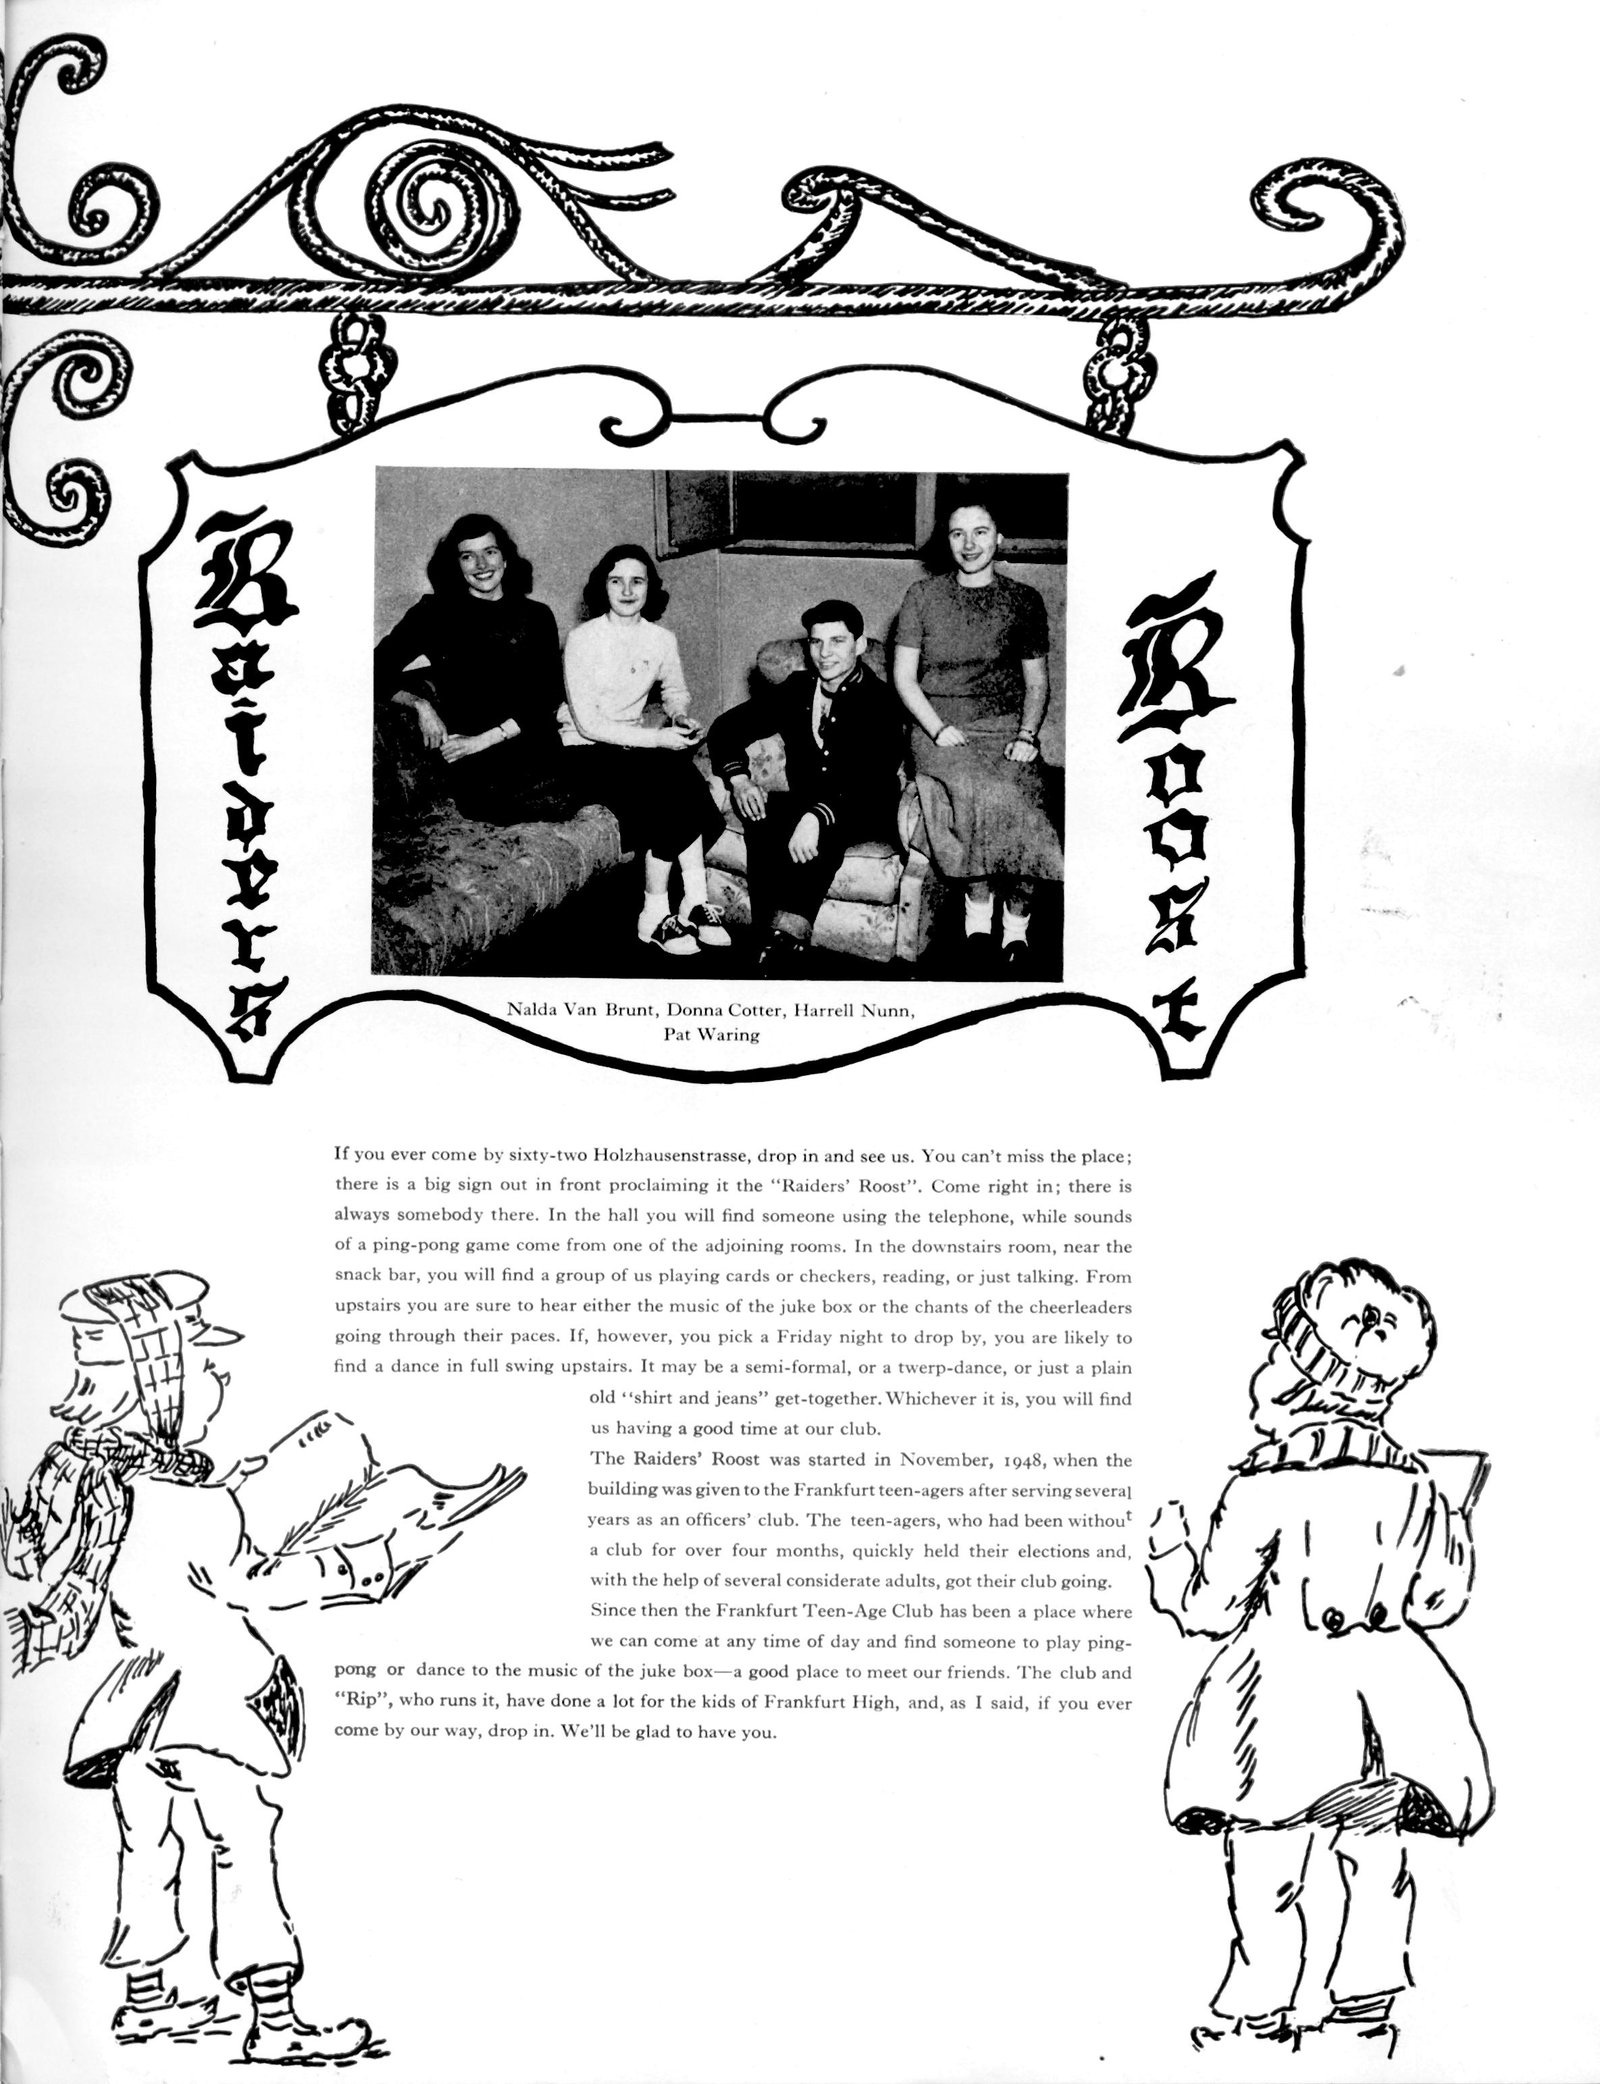 Raiders
Roost
Nalda Van Brunt, Donna Cotter, Harrell Nunn,
Pat Waring
If you ever come by sixty-two Holzhausenstrasse, drop in and see us. You can't miss the place;
there is a big sign out in front proclaiming it the “Raiders' Roost”. Come right in; there is
always somebody there. In the hall you will find someone using the telephone, while sounds
of a ping-pong game come from one of the adjoining rooms. In the downstairs room, near the
snack bar, you will find a group of us playing cards or checkers, reading, or just talking. From
upstairs you are sure to hear either the music of the juke box or the chants of the cheerleaders
going through their paces. If, however, you pick a Friday night to drop by, you are likely to
find a dance in full swing upstairs. It may be a semi-formal, or a twerp-dance, or just a plain
old “shirt and jeans” get-together. Whichever it is, you will find
us having a good time at our club.
The Raiders' Roost was started in November, 1948, when the
building was given to the Frankfurt teen-agers after serving several
years as an officers' club. The teen-agers, who had been without
a club for over four months, quickly held their elections and,
with the help of several considerate adults, got their club going.
Since then the Frankfurt Teen-Age Club has been a place where
we can come at any time of day and find someone to play ping-
pong or dance to the music of the juke box—a good place to meet our friends. The club and
“Rip”, who runs it, have done a lot for the kids of Frankfurt High, and, as I said, if you ever
come by our way, drop in. We'll be glad to have you.